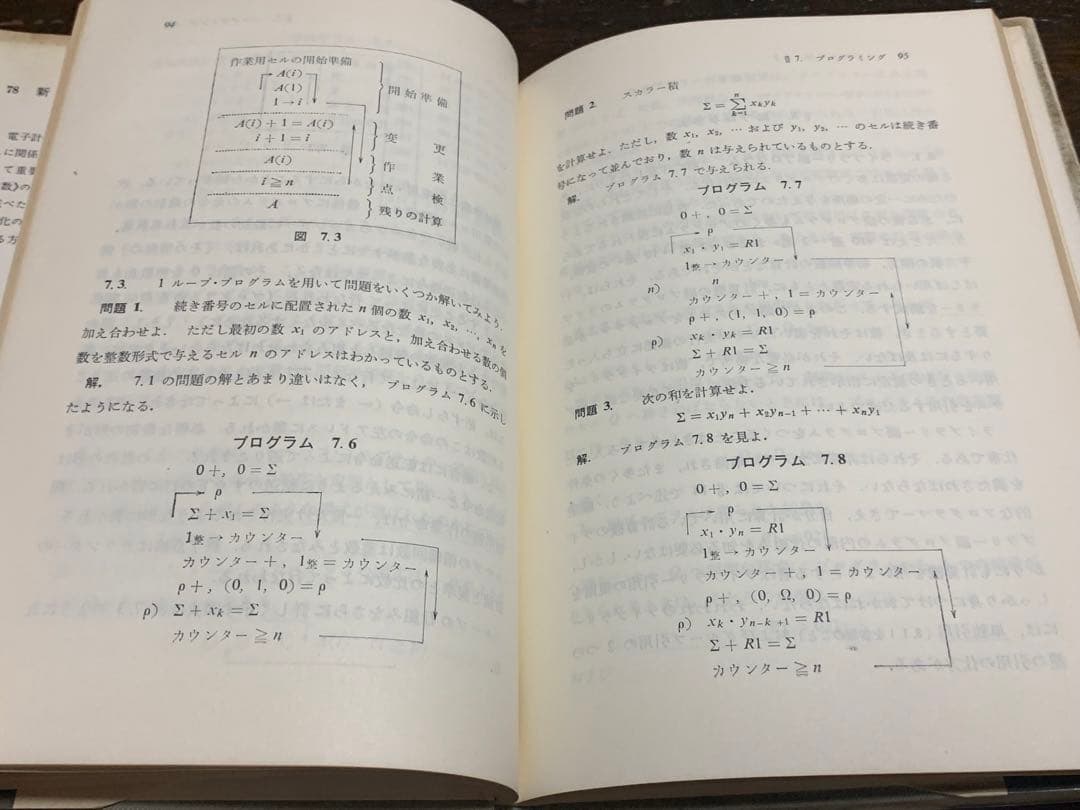 78 新
電子計
に関係
て重要
数》の
べた
化の
る方
94
作業用セルの開始準備
A(i)
A(1)
1→i
開始準備
A(i)+1=A(i)
i+1=i
変更
A(i)
作業
i≧n
点検
A
残りの計算
図 7.3
7.3. 1ループ・プログラムを用いて問題をいくつか解いてみよう.
問題1. 続き番号のセルに配置された n 個の数 x₁, x₂, …, xₙ を
加え合わせよ. ただし最初の数 x₁ のアドレスと, 加え合わせる数の個
数を整数形式で与えるセル n のアドレスはわかっているものとする.
解. 7.1 の問題の解とあまり違いはなく, プログラム 7.6 に示し
たようになる.
プログラム 7.6
0+, 0=Σ
ρ
Σ+x₁=Σ
1整→カウンター
カウンター+, 1整=カウンター
ρ+, (0, 1, 0)=ρ
ρ) Σ+xₖ=Σ
カウンター≧n
§7. プログラミング 95
問題2. スカラー積
Σ=∑ⁿₖ₌₁ xₖyₖ
を計算せよ. ただし, 数 x₁, x₂, … および y₁, y₂, … のセルは続き番
号になって並んでおり, 数 n は与えられているものとする.
解. プログラム 7.7 で与えられる.
プログラム 7.7
0+, 0=Σ
ρ
x₁·y₁=R1
1整→カウンター
n) n
カウンター+, 1=カウンター
ρ+, (1, 1, 0)=ρ
ρ) xₖ·yₖ=R1
Σ+R1=Σ
カウンター≧n
問題3. 次の和を計算せよ.
Σ=x₁yₙ+x₂yₙ₋₁+…+xₙy₁
解. プログラム 7.8 を見よ.
プログラム 7.8
0+, 0=Σ
ρ
x₁·yₙ=R1
1整→カウンター
カウンター+, 1=カウンター
ρ+, (0, Ω, 0)=ρ
ρ) xₖ·yₙ₋ₖ₊₁=R1
Σ+R1=Σ
カウンター≧n